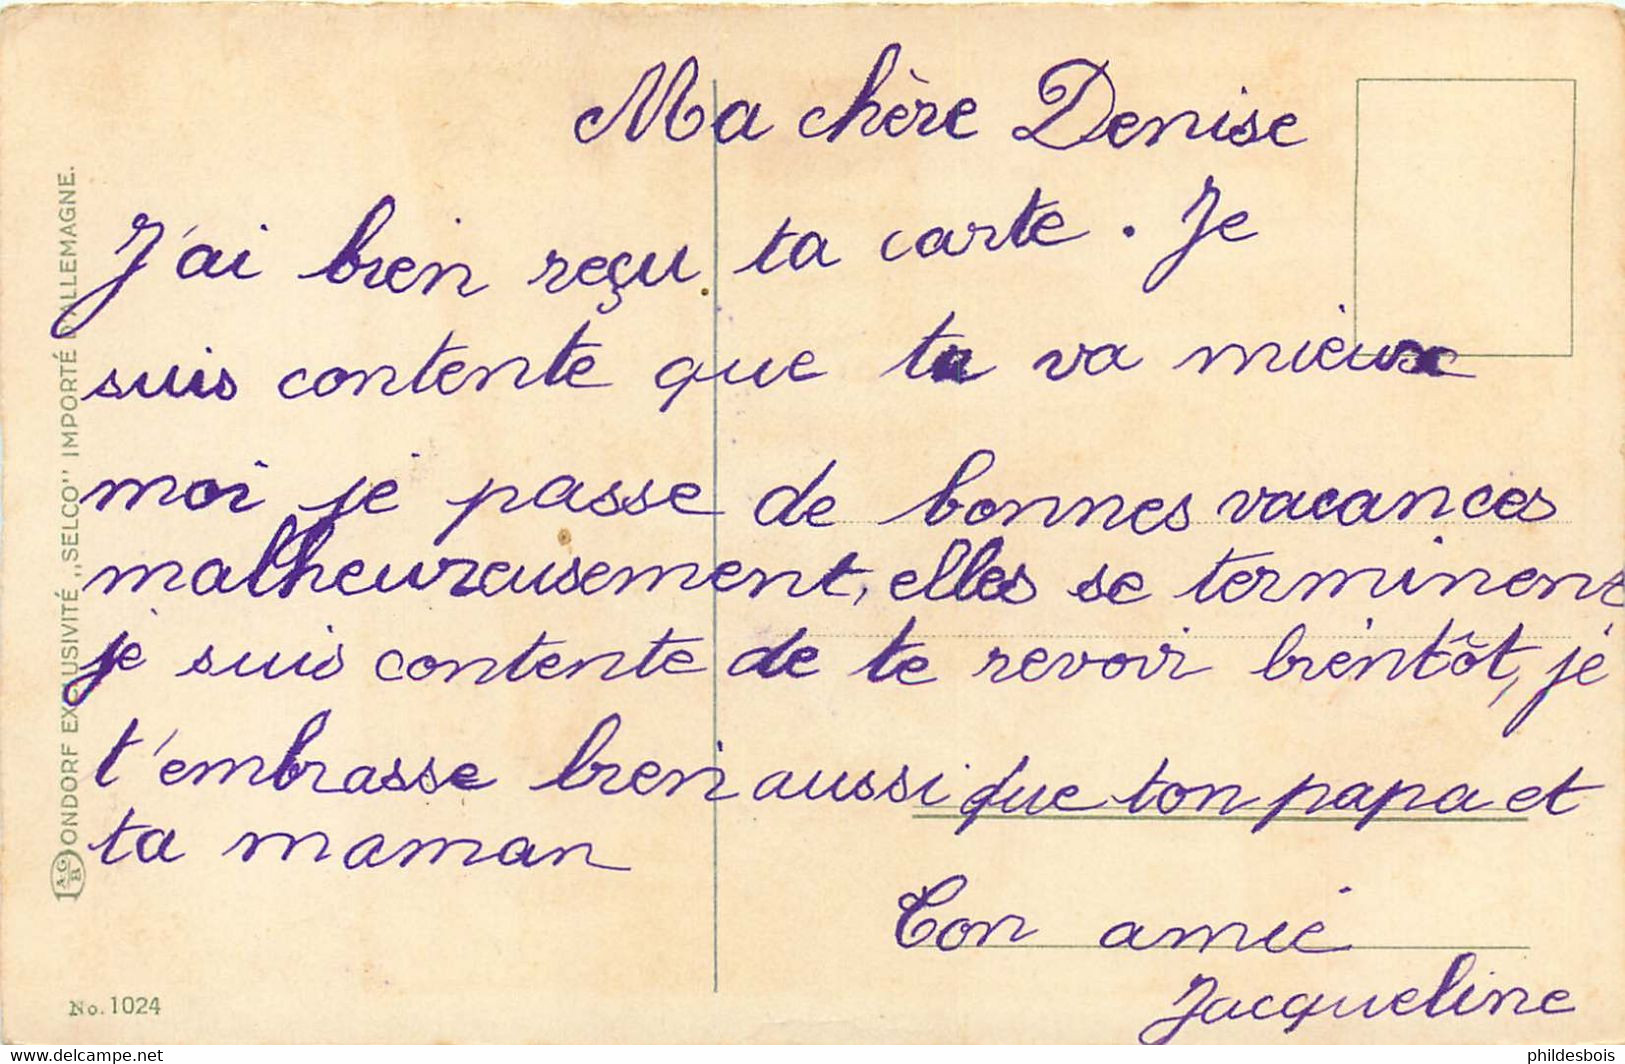 Ma chère Denise
J'ai bien reçu ta carte. Je
suis contente que tu va mieux
moi je passe de bonnes vacances
malheureusement, elles se terminent
je suis contente de te revoir bientôt, je
t'embrasse bien aussi que ton papa et
ta maman
Ton amie
Jacqueline
ONDORF EXCLUSIVITÉ ,,SELCO'' IMPORTÉ D'ALLEMAGNE.
No. 1024
www.delcampe.com
phildesbois